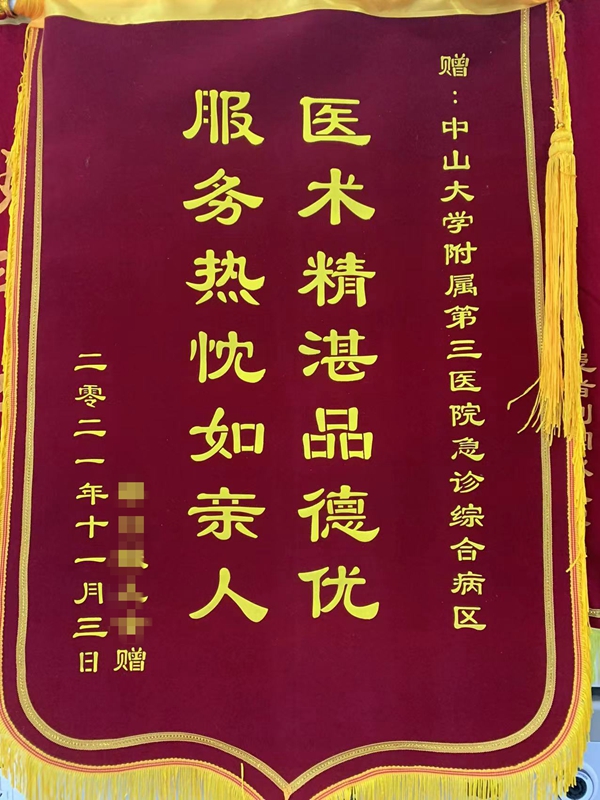 赠：中山大学附属第三医院急诊综合病区
医术精湛品德优
服务热忱如亲人
赠
二零二一年十一月三日